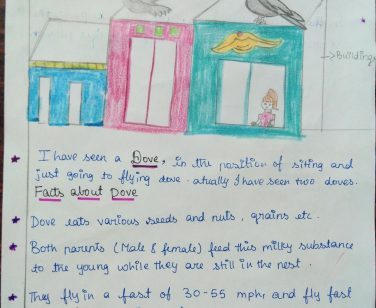 Buildings
I have seen a Dove, in the position of siting and
just going to flying dove. atually I have seen two doves.
Facts about Dove
Dove eats various seeds and nuts, grains etc.
Both parents (Male & female) feed this milky substance
to the young while they are still in the nest.
They fly in a fast of 30-55 mphr and fly fast